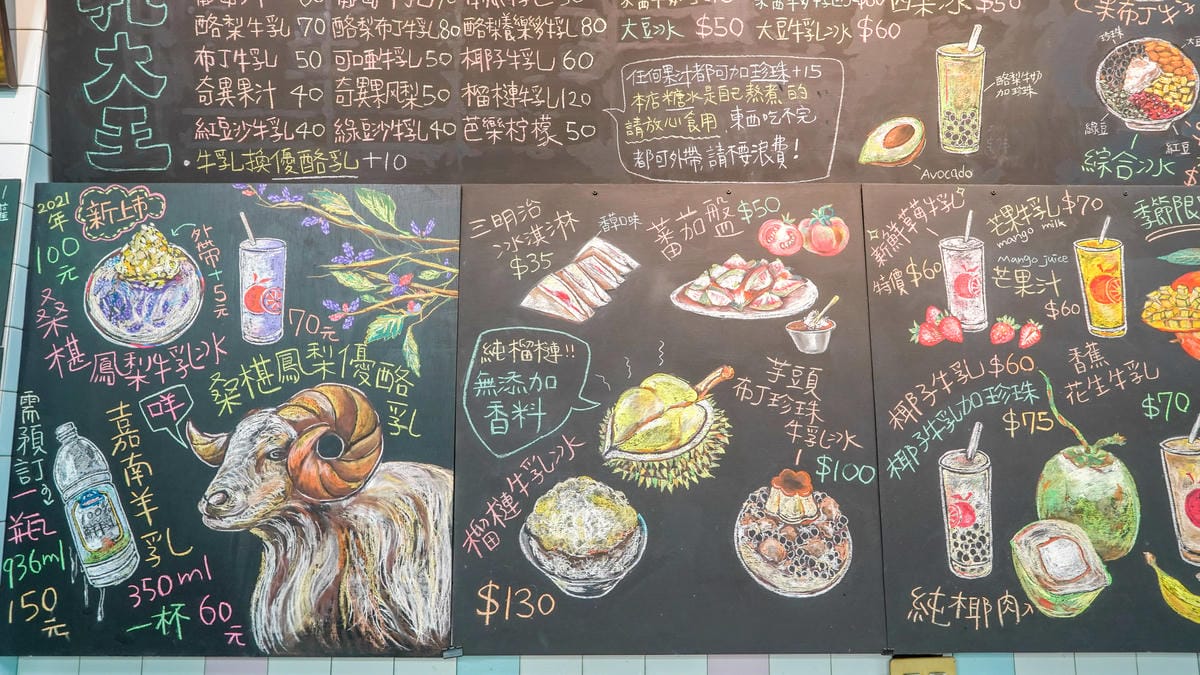 乳大王
酪梨牛乳 70 酪梨布丁牛乳80 酪梨養樂多牛乳 80
布丁牛乳 50 可口亜牛乳50 椰子牛乳 60
奇異果汁 40 奇異果鳳梨50 榴槤牛乳120
紅豆沙牛乳40 綠豆沙牛乳40 芭樂柠檬 50
•牛乳換優酪乳 +10
大豆冰 $50 大豆牛乳冰 $60
$50
任何果汁都可加珍珠+15
本店糖水是自己熬煮的
請放心食用 東西吃不完
都可外帶,請不要浪費!
酪梨牛奶
加珍珠
Avocado
珍珠
綠豆
紅豆
綜合冰
2021
年
新上市
100
元
外帶
+5元
桑椹鳳梨牛乳冰
70元
桑椹鳳梨優酪乳
咩
需預訂
一瓶
936ml
150元
嘉南羊乳
350ml
一杯 60元
三明治
冰淇淋
$35
香草口味
蕃茄盤 $50
純榴槤!!
無添加
香料
榴槤牛乳冰
$130
芋頭
布丁珍珠
牛乳冰
$100
新鮮草莓牛乳
特價 $60
芒果牛乳 $70
mango milk
Mango juice
芒果汁
$60
季節限
椰子牛乳 $60
椰子牛乳加珍珠
$75
香蕉
花生牛乳
$70
純椰肉